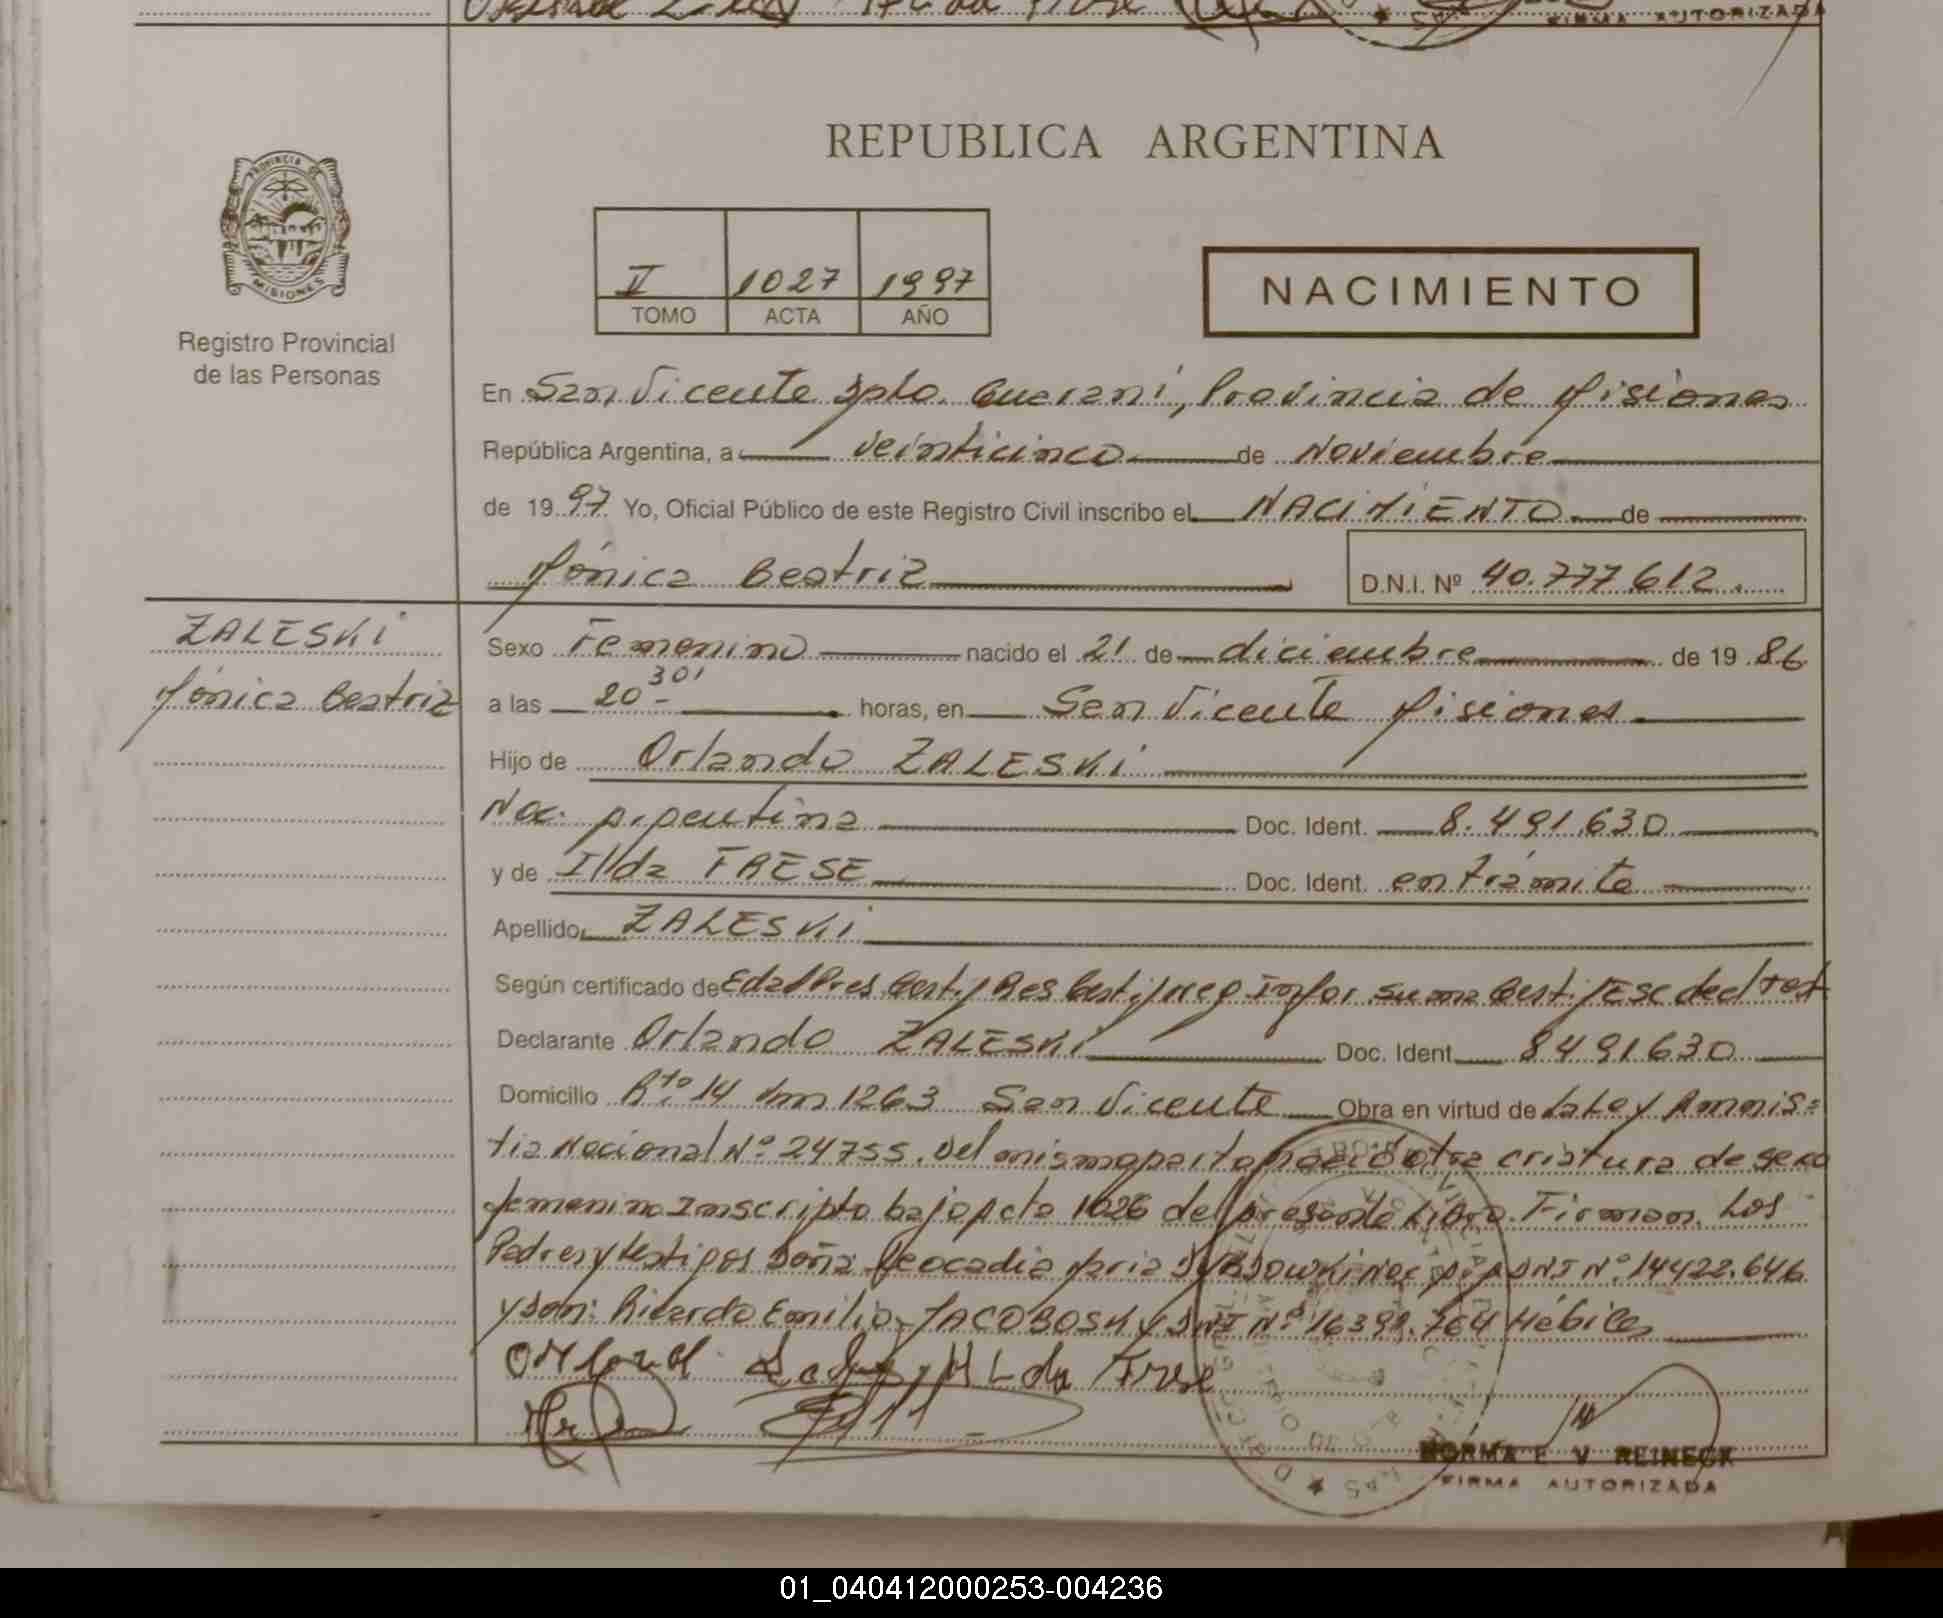 FIRMA AUTORIZADA
REPUBLICA ARGENTINA
PROVINCIA DE
MISIONES
Registro Provincial
de las Personas
II 1027 1997
TOMO ACTA AÑO
NACIMIENTO
En San Vicente Dpto. Guaraní, Provincia de Misiones
República Argentina, a veinticinco de Noviembre
de 1997 Yo, Oficial Público de este Registro Civil inscribo el NACIMIENTO de
Mónica Beatriz D.N.I. Nº 40.777.612.
ZALESKI
Mónica Beatriz
Sexo Femenino nacido el 21 de diciembre de 1986
a las 20 30' horas, en San Vicente Misiones
Hijo de Orlando ZALESKI
Nac. Argentina Doc. Ident. 8.491.630
y de Ilda FRESE Doc. Ident. en trámite
Apellido ZALESKI
Según certificado de Edad Pres Cert. y Res Cert. y Neg Infor suma Cert. y Esc decl test
Declarante Orlando ZALESKI Doc. Ident 8491630
Domicilio Rta. 14 Km 1263 San Vicente Obra en virtud de La Ley Amnis=
tia Nacional Nº 24755. Del mismo parto nació otra criatura de sexo
femenino Inscripto bajo Acta 1026 del presente Libro. Firman Los
Padres y testigos Doña Leocadia Maria Nac Arg DNI Nº 14422.646
y Don: Ricardo Emilio JACOBOSKY DNI Nº 16391.764 Hábiles
Ilda Frese
NORMA E. V. REINECK
FIRMA AUTORIZADA
01_040412000253-004236